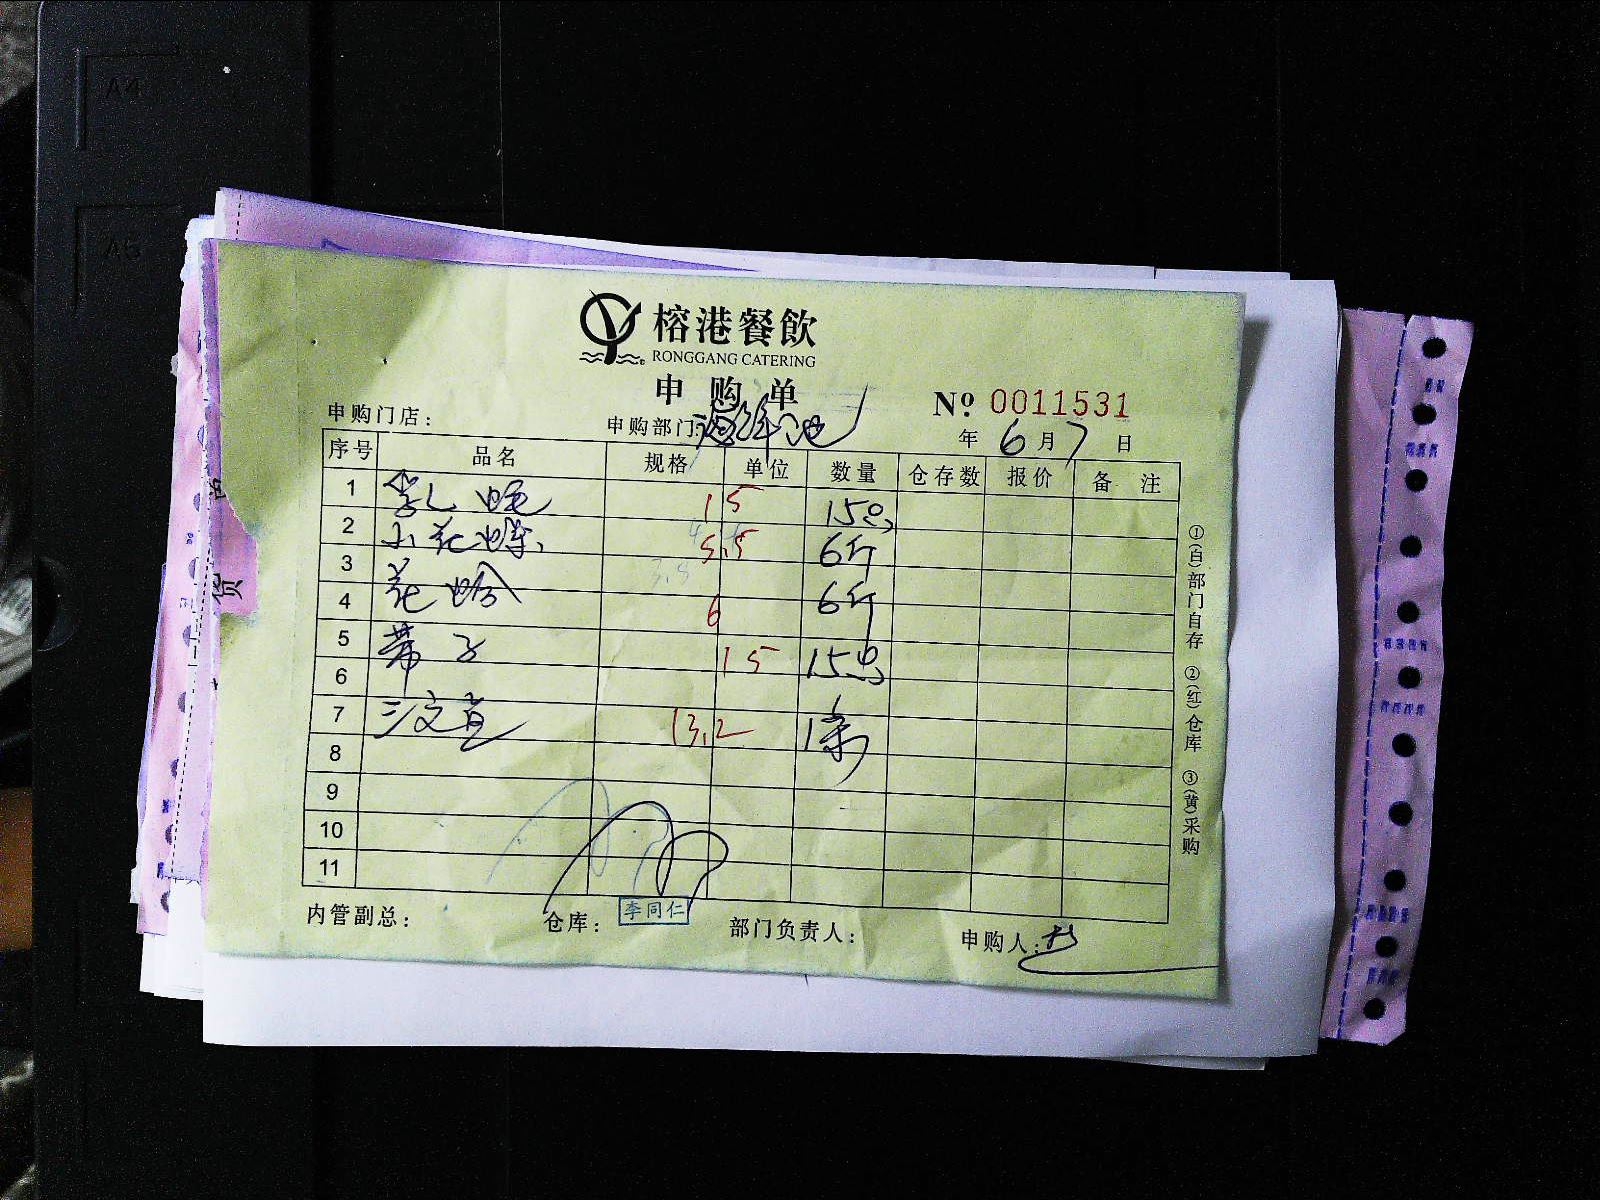 A4
A5
榕港餐飲
RONGGANG CATERING
申购单
Nº 0011531
申购门店：
申购部门：海鲜池
年 6 月 7 日
序号 品名 规格 单位 数量 仓存数 报价 备注
1 15 15只
2 小花螺 5.5 6斤
3 3.5
4 花蛤 6 6斤
5 带子 15 15只
6
7 三文鱼 13.2 1条
8
9
10
11
①(白)部门自存 ②(红)仓库 ③(黄)采购
内管副总：
仓库：李同仁
部门负责人：
申购人：
货